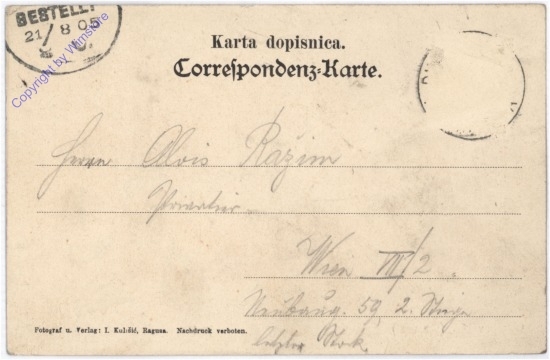 BESTELLT
21/8 05
Copyright by Wirnsnore
Karta dopisnica.
Correspondenz-Karte.
Herrn Alois Razim
Privatier
Wien VII/2
Neubaug. 59 2. Stiege
letzter Stok
Fotograf u. Verlag: I. Kulišić, Ragusa. Nachdruck verboten.